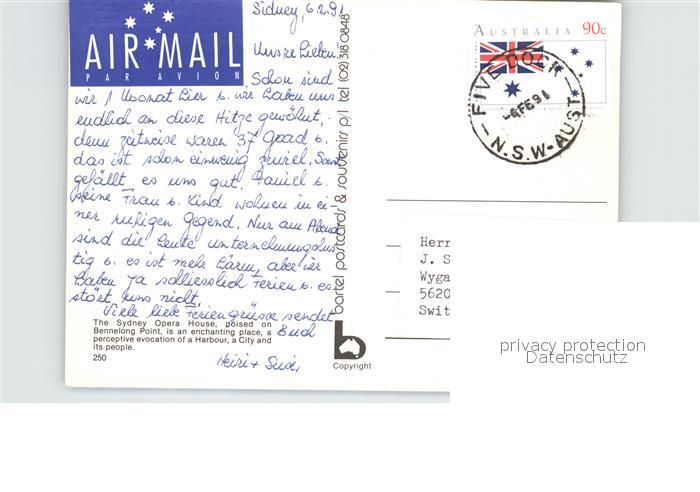 AIR MAIL
PAR AVION
Sidney, 6.2.91
Unsre Lieben.
Schon sind
wir 1 Monat hier u. wir haben uns
endlich an diese Hitze gewöhnt,
denn zeitweise waren 37 Grad u.
das ist schon einwenig zuviel. Sonst
gefällt es uns gut. Daniel u.
seine Frau u. Kind wohnen in ei-
ner ruhigen Gegend. Nur am Abend
sind die Leute unternehmungslus-
tig u. es ist mehr Lärm, aber wir
haben ja schliesslich Ferien u. es
stört uns nicht.
Viele liebe Feriengrüsse sendet
Euch
Heiri + Susi,
The Sydney Opera House, poised on
Bennelong Point, is an enchanting place, a
perceptive evocation of a Harbour, a City and
its people.
250
bartel postcards & souvenirs p/l tel (02) 318 0848
b
Copyright
AUSTRALIA 90c
FIVE DOCK
-6FE91
N.S.W-AUST
Herr
J. S
Wyga
5620
Swit
privacy protection
Datenschutz